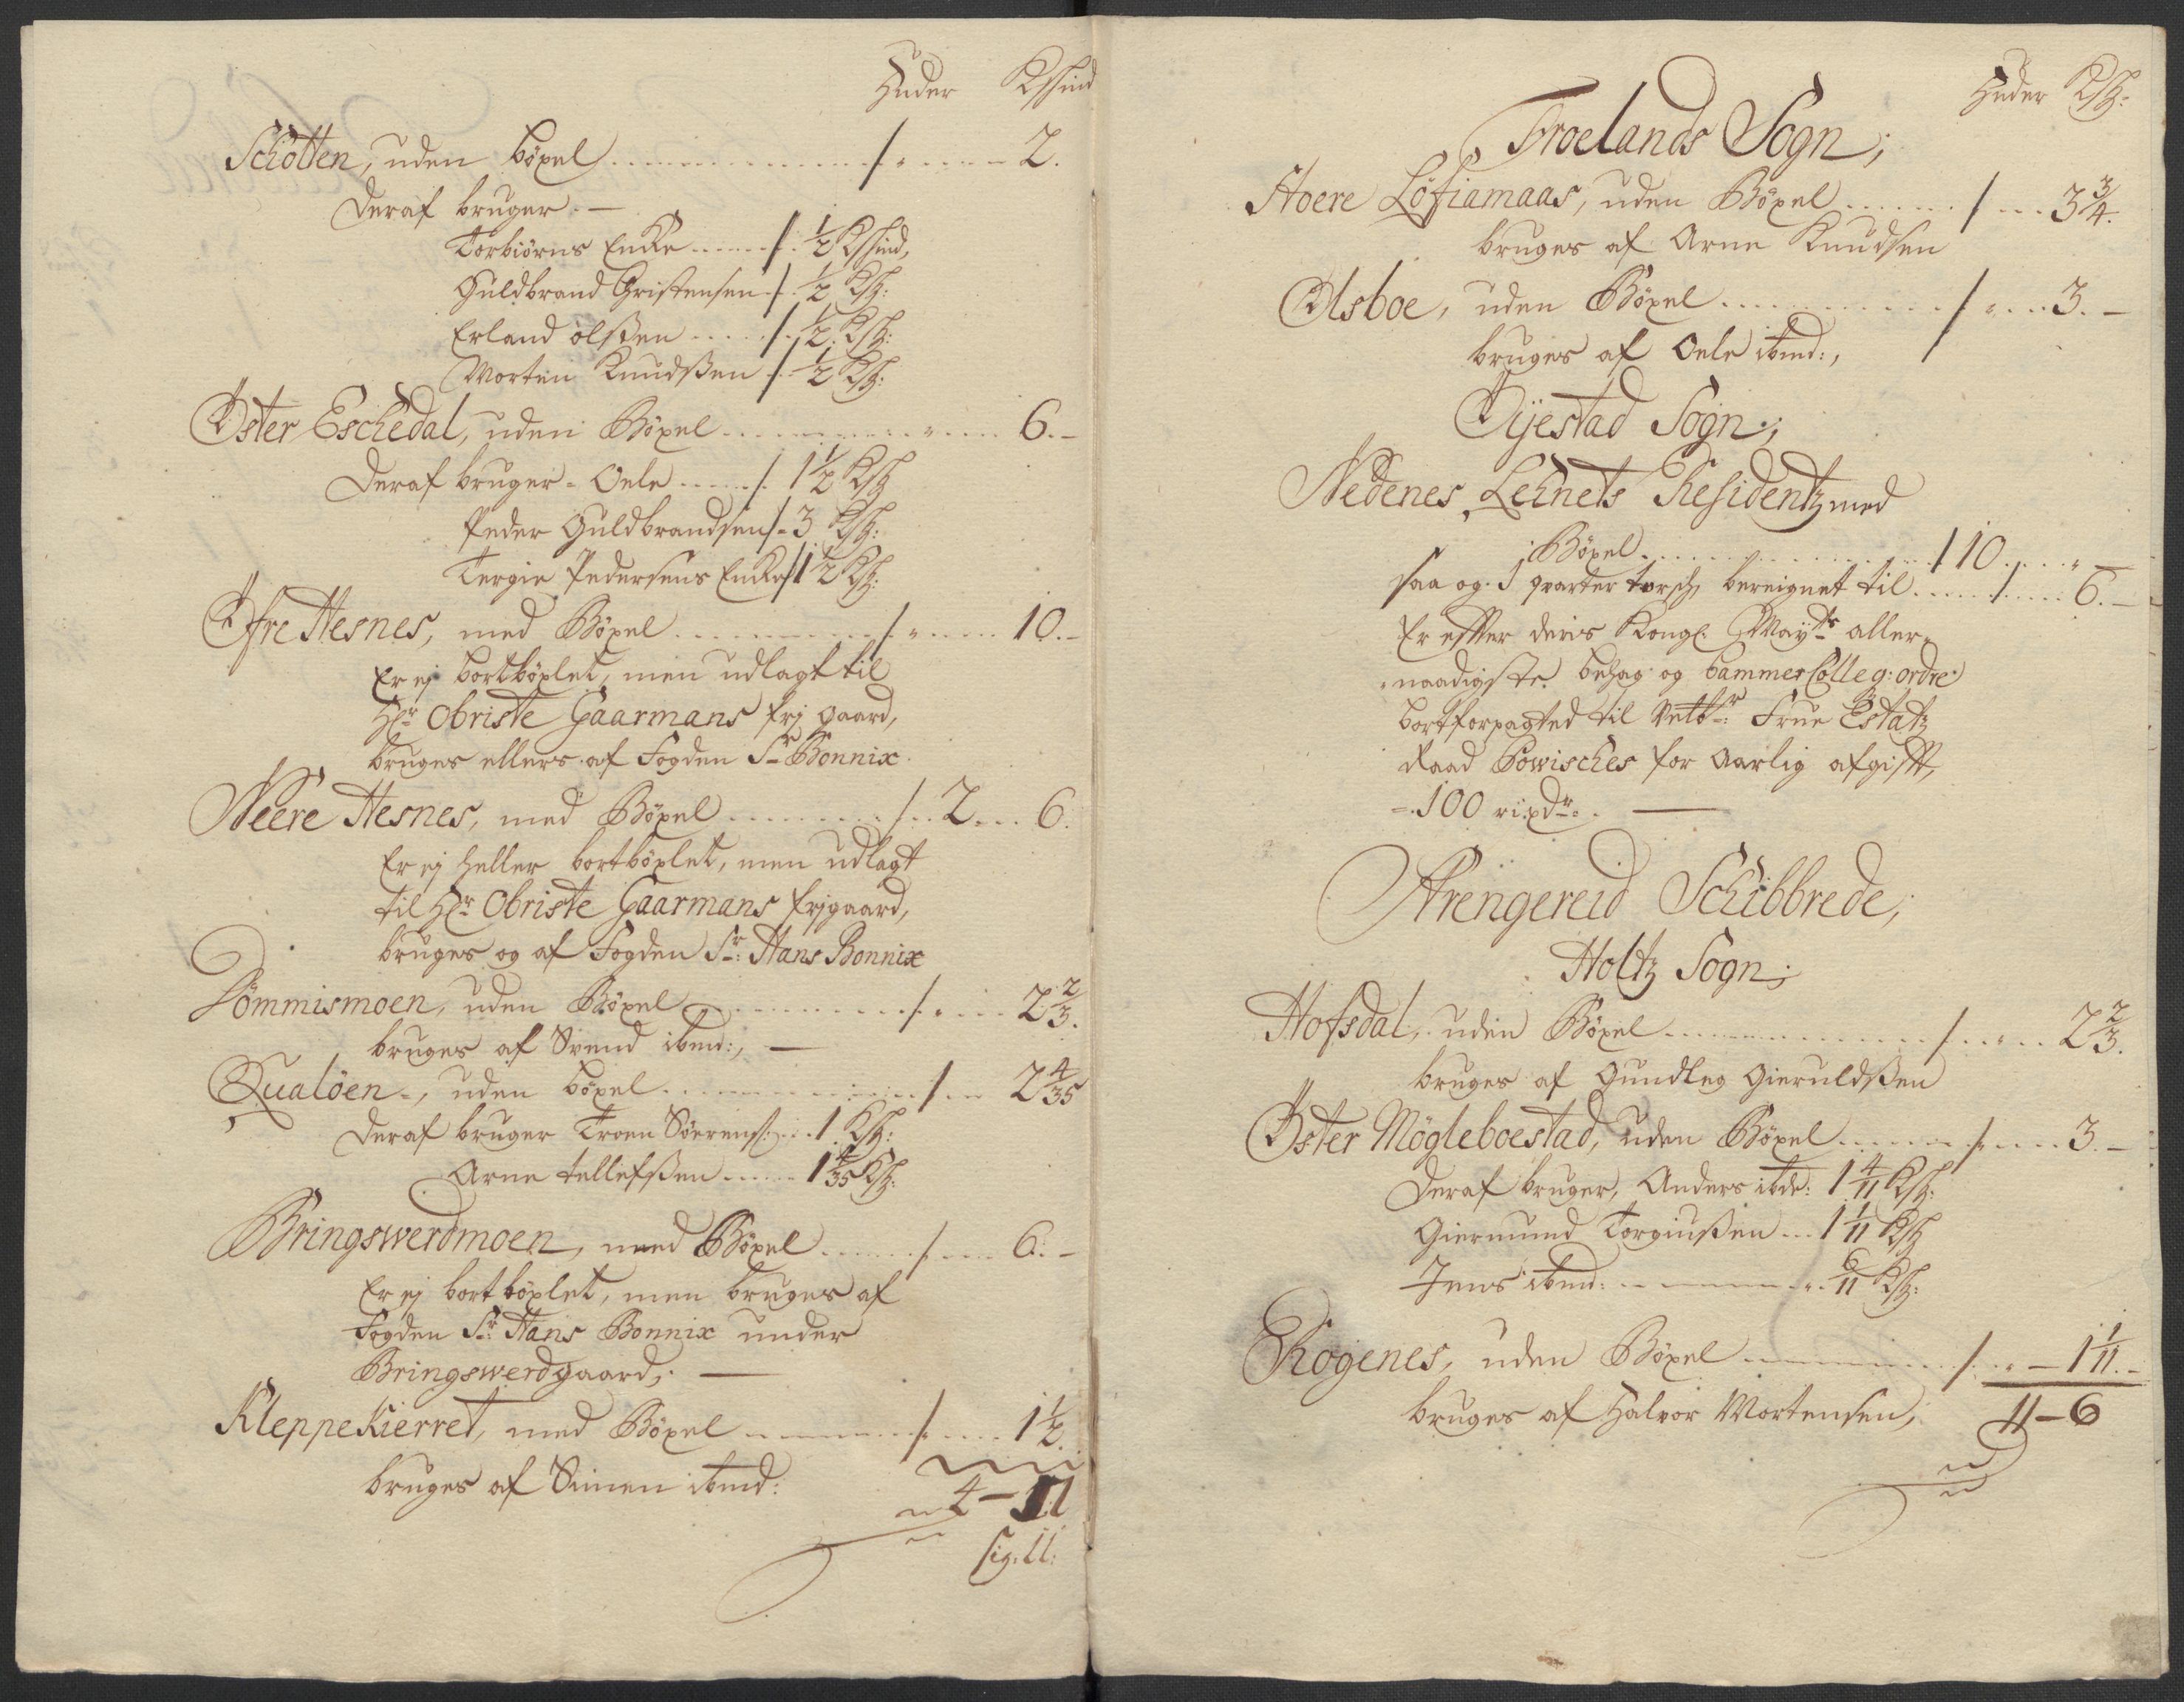 Huder Kshind
Schotten, uden böxel ... 2.
Deraf bruger. —
Torbiörns Encke ... ½ Kshind,
Guldbrand Christensen ½ Ksh:
Erland olßen ... ½ Ksh:
Morten Knudßen ½ Ksh:
Öster Eschedal, uden Böxel ... 6. –
Deraf bruger - Oele ... 1½ Ksh
Peder Guldbrandsen - 3 Ksh:
Tergie Pedersens Encke 1½ Ksh:
Öfre Hesnes, med Böxel ... 10. –
Er ej bortböxlet, men udlagt til
Hr Obriste Gaarmans frj gaard,
bruges ellers af Fogden Sr Bonnix
Neere Hesnes, med Böxel ... 2 ... 6.
Er ej heller bortböxlet, men udlagt
til Hr Obriste Gaarmans frjgaard,
bruges og af Fogden Sr: Hans Bonnix
Dömmismoen, uden Böxel ... 2 2/3.
bruges af Svend ibmd:, —
Qualöen -, uden böxel ... 2 4/35
Deraf bruger Troen Sörens: ... 1 Ksh:
Arne tellefßen ... 1 4/35 Ksh:
Bringswerdmoen, med Böxel ... 6: –
Er ej bortböxlet, men bruges af
Fogden Sr: Hans Bonnix under
Bringswerdgaard,. —
Kleppekierret, med Böxel ... 1½.
bruges af Simen ibmd:
4 – 11
Huder Ksh:
Froelands Sogn;
Hoere Löfiamaas, uden Böxel ... 3 3/4.
bruges af Arne Knudsen
Osboe, uden Böxel ... 3. –
bruges af Oele ibmd:,
Öyestad Sogn;
Nedenes, Lehnets Residentz med
Böxel ... 10 ... –
saa og 1 qvarter torsch, bereignet til ... 6. –
Er effter deris Kongl. Mayts aller-
naadigste behag og Cammer Colleg: ordre
bortforpagted til Velbr: Frue Estatz
Raad Powisches for Aarlig afgifft,
- 100 rixdr: . —
Arengereid Schibbrede;
Holtz Sogn;
Hofsdal, uden Böxel ... 2 2/3.
bruges af Gundleg Gieruldßen
Öster Mögleboestad, uden Böxel ... 3. –
Deraf bruger, Anders ibdr: 1 4/11 Ksh:
Giermund Torgiußen ... 1 1/11 Ksh
Jens ibmd: ... 6/11 Ksh:
Rogenes, uden Böxel ... 1 1/11. –
bruges af Halvor Mortensen,
11 – 6